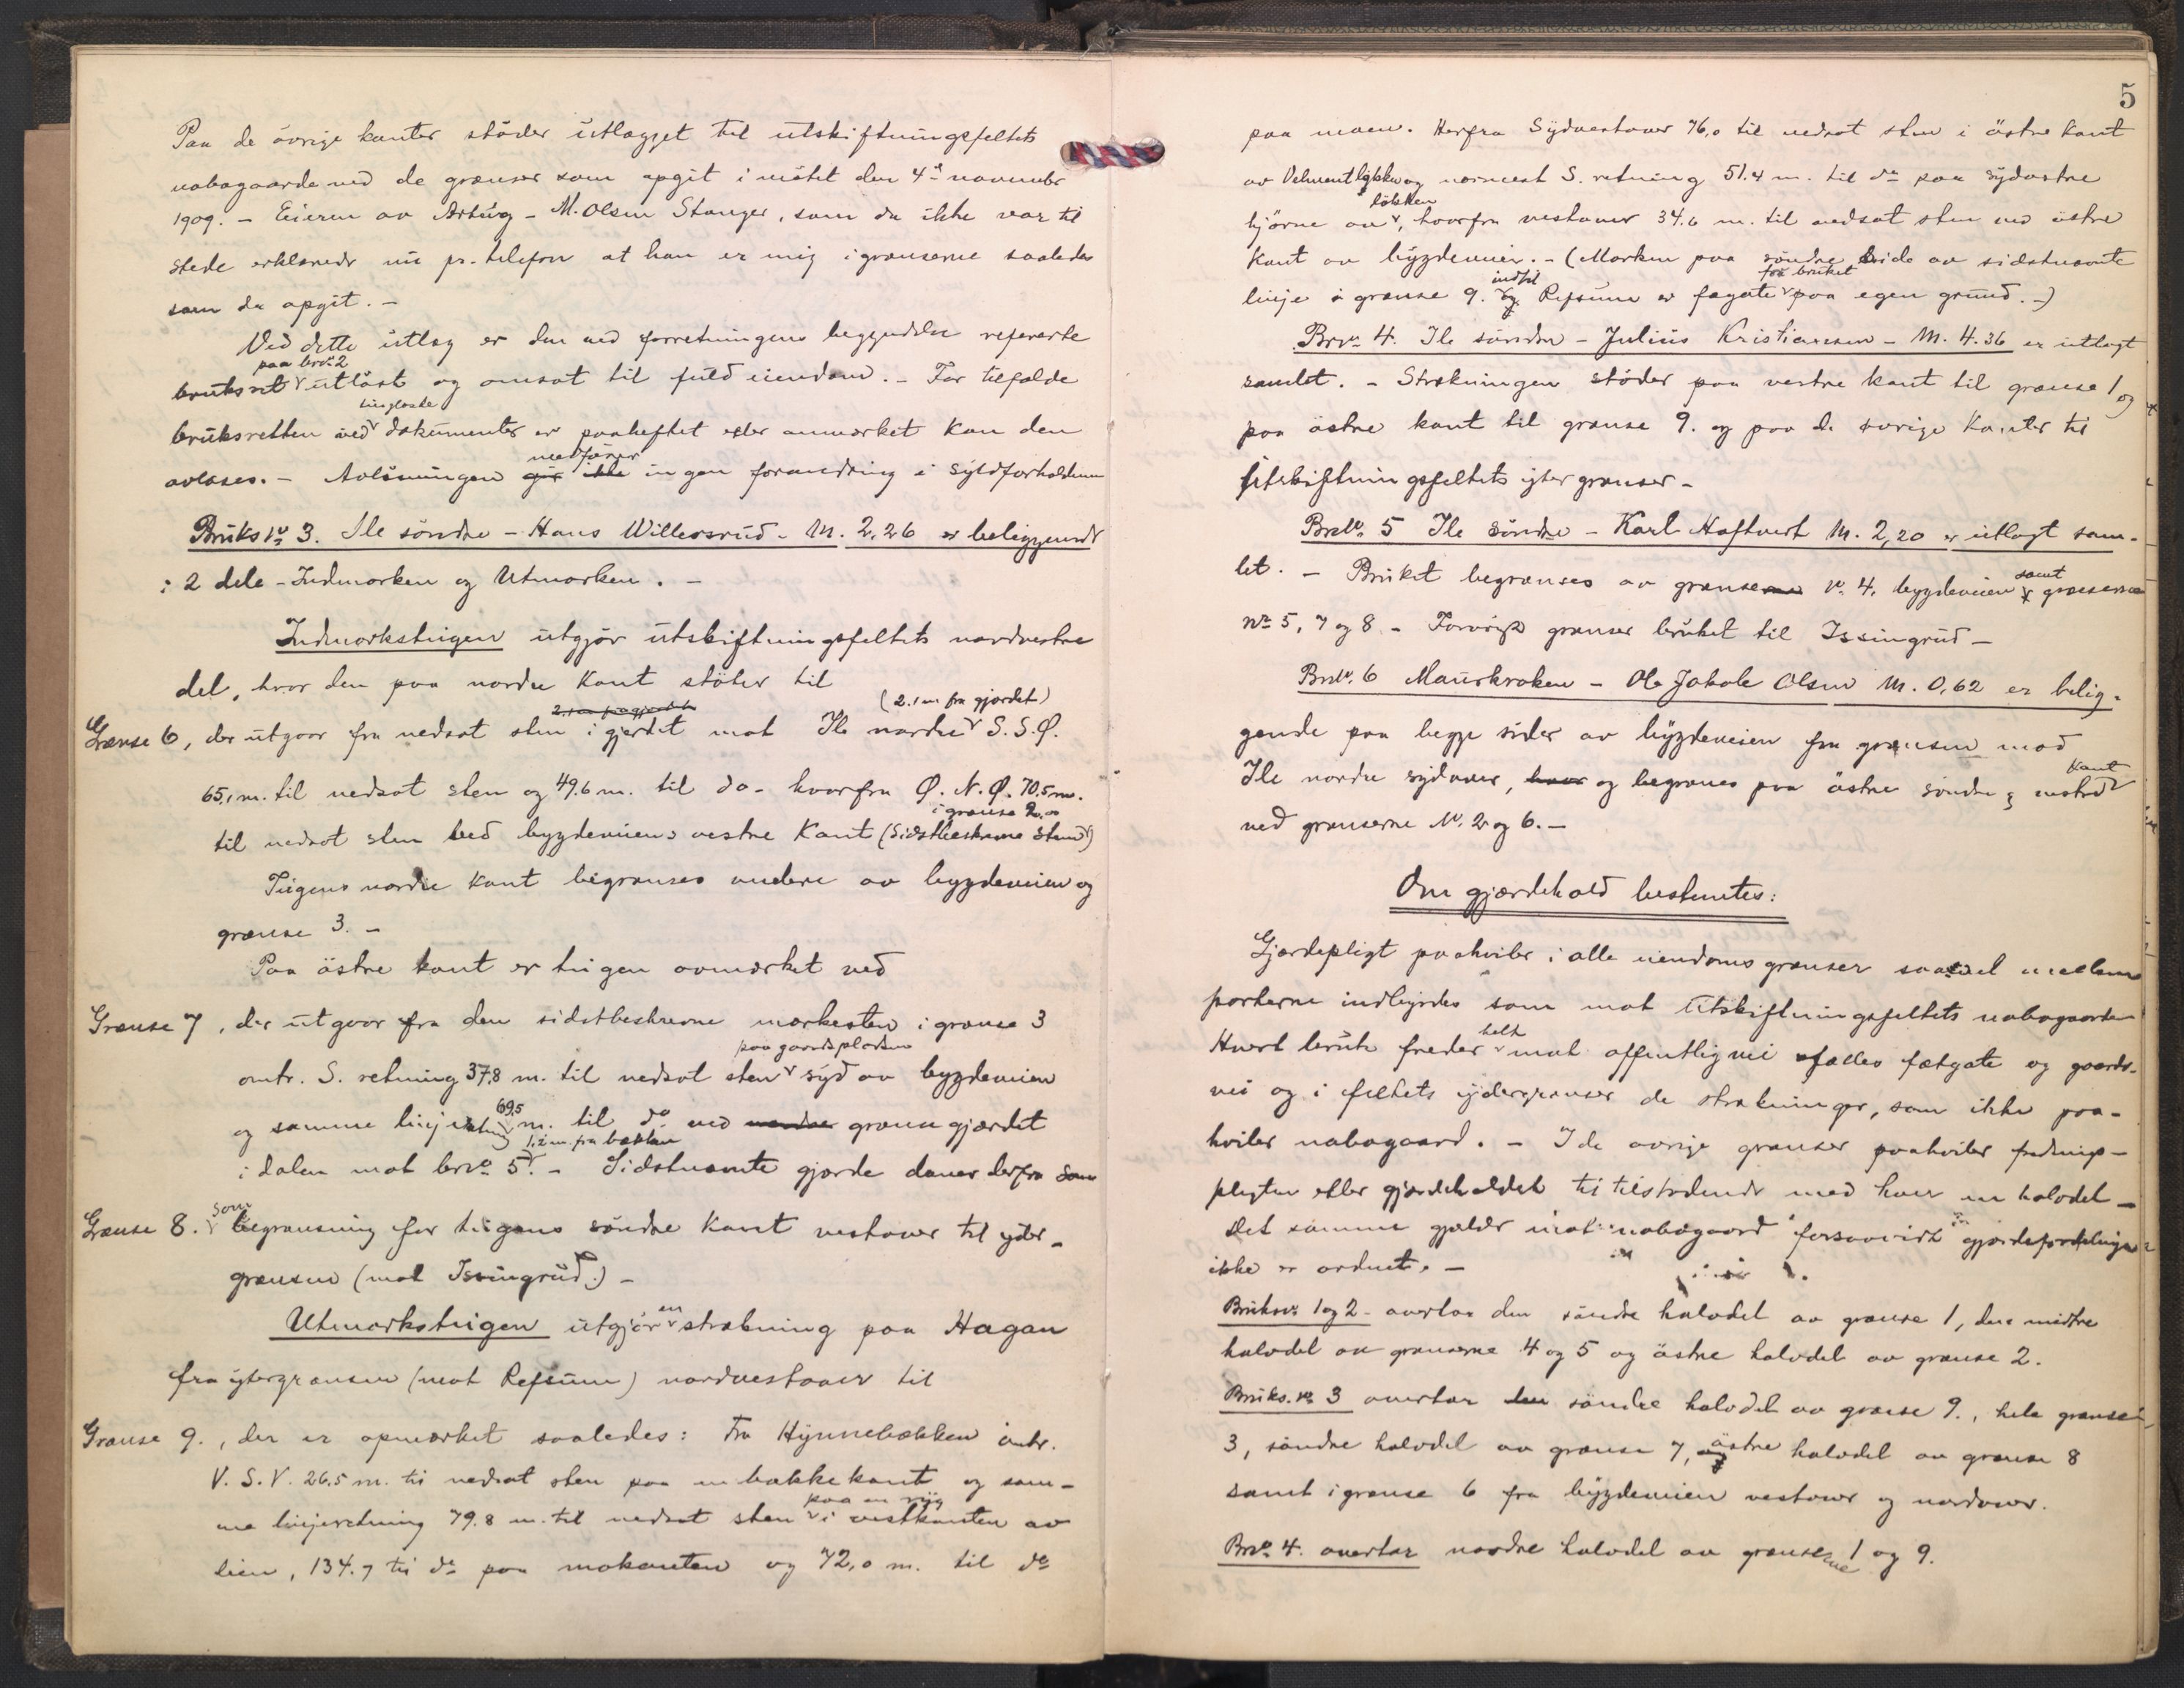 Paa de övrige kanter stöder utlægget til utskiftningsfeltets
nabogaarde med de grænser som opgit i mötet den 4de november
1909. – Eieren av Asbug – M. Olsen Stanger, som da ikke var til
stede erklærede nu pr. telefon at han er enig i grænserne saaledes
som da opgit. –
Ved dette utlæg er den ved forretningens begyndelse refererte
paa brno 2
bruksret utlöst og omsat til fuld eiendom. – For tilfælde
tinglæste
bruksretten ved dokumenter er paaheftet eller anmerket kan den
medförer
avlöses. – Avlösningen gir ikke ingen forandring i skyldforholdene
Bruks no 3. Ile söndre – Hans Willersrud – M. 2,26 er beliggende
i 2 dele – Indmarken og Utmarken. –
Indmarksteigen utgjör utskiftningsfeltets nordvestre
del, hvor den paa nordre kant stöter til
2.1 m fra gjærdet (2.1 m fra gjordet)
Grænse 6, der utgaar fra nedsat sten i gjerdet mot Ile nordre S.S.Ø.
65,1 m. til nedsat sten og 49.6 m. til do – hvorfra Ø.N.Ø. 70,5 m.
i grænse 2
til nedsat sten ved bygdeveiens vestre kant (Sidstbeskrevne sten)
Teigens nordre kant begrænses videre av bygdeveien og
grænse 3. –
Paa östre kant er teigen avmerket ved
Grænse 7, der utgaar fra den sidstbeskrevne merkesten i grænse 3
paa gaardspladsen
omtr. S. retning 37,8 m. til nedsat sten syd av bygdeveien
og samme linjeretning 69,5 m. til do ved nordre grænsegjærdet
1,2 m. fra bækken
i dalen mot brno 5. – Sidstnævnte gjærde danner derfra som
som
Grænse 8. begrænsning for teigens söndre kant vestover til yder-
grænsen (mot Issingrud) –
en
Utmarksteigen utgjör strækning paa Hagan
fra ytergrænsen (mot Refsum) nordvestover til
Grænse 9., der er opmerket saaledes: Fra Hynnebækken omtr.
V.S.V. 26.5 m. til nedsat sten paa en bakkekant og sam-
paa en ryg
me linjeretning 79.8 m. til nedsat sten i vestkanten av
lien, 134.7 til do paa mokanten og 72,0 m. til do
5
paa moen. Herfra Sydvestover 76,0 til nedsat sten i östre kant
av Delmentlykke og nærmest S. retning 51.4 m. til do paa sydöstre
lökken
hjörne av, hvorfra vestover 34.6 m. til nedsat sten ved östre
kant av bygdeveien. – (Marken paa söndre side av sidstnævnte
indtil for bruket
linje i grænse 9. og Refsum er fægate paa egen grund. –)
Brno 4. Ile söndre – Julius Kristiansen – M. 4.36 er utlagt
samlet. – Strækningen stöder paa vestre kant til grænse 1 og
paa östre kant til grænse 9. og paa de övrige kanter til
utskiftningsfeltets ytergrænser –
Brno 5 Ile söndre – Karl Haftvert M. 2,20 er utlagt sam-
let. – Bruket begrænses av grænserne No. 4, bygdeveien samt grænserne
No 5, 7 og 8 – Forövrig grænser bruket til Issingrud –
Brno. 6 Maurkroken – Ole Jakob Olsen M. 0,62 er belig-
gende paa begge sider av bygdeveien fra grænsen mod
Ile nordre sydover, hvor og begrænses paa östre söndre og vestre kant
ved grænserne No. 2 og 6. –
Om gjærdehold bestemtes:
Gjærdepligt paahviler i alle eiendomsgrænser saavel mellem
parterne indbyrdes som mot utskiftningsfeltets nabogaarde
helt
Hvert bruk freder mot offentlig vei fælles fægate og gaards-
vei og i feltets ydergrænser de strækninger, som ikke paa-
hviler nabogaard. – I de övrige grænser paahviler frednings-
pligten eller gjærdeholdet de tilstödende med hver en halvdel –
Det samme gjælder mot nabogaard forsaavidt gjerdefordelingen
ikke er ordnet. –
Bruksno 1 og 2 – overtar den söndre halvdel av grænse 1, den midtre
halvdel av grænserne 4 og 5 og östre halvdel av grænse 2.
Bruks. no 3 overtar den söndre halvdel av grænse 9., hele grænse
3, söndre halvdel av grænse 7, og östre halvdel av grænse 8
samt i grænse 6 fra bygdeveien vestover og nordover.
Brno 4. overtar nordre halvdel av grænserne 1 og 9.